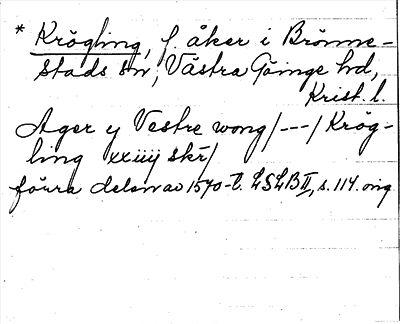 * Krögling, f. åker i Brönne-
stads sn, Västra Göinge hd,
Krist. l.
Ager y Vestre wong/---/Krög-
ling xxiiij skr/
förra delen av 1570-t. LSLB II, s. 114. orig